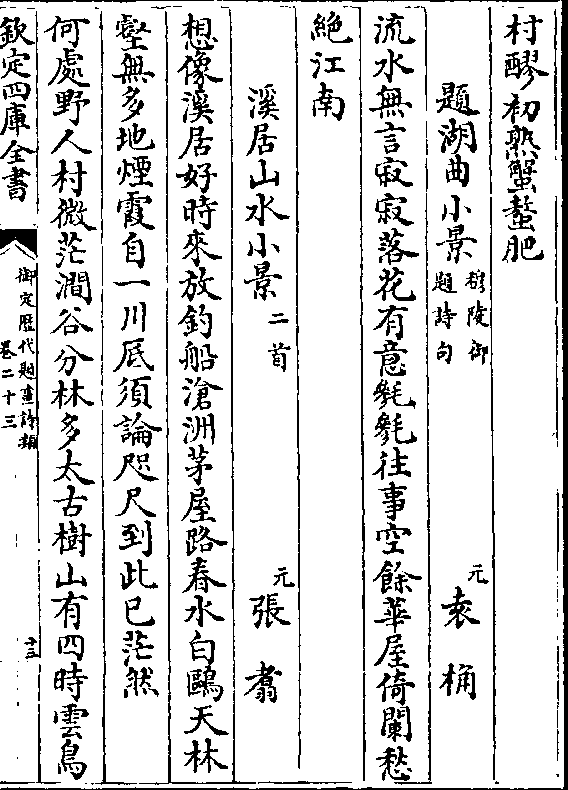 村醪初熟蟹螯肥
題湖曲小景 穆陵御題詩句 元 袁桷
流水無言寂寂落花有意毿毿往事空餘華屋倚闌愁
絶江南
溪居山水小景 二首 元 張翥
想像溪居好時來放釣船滄洲茅屋路春水白鷗天林
壑無多地煙霞自一川底須論咫尺到此已茫然
何處野人村微茫澗谷分林多太古樹山有四時雲鳥
欽定四庫全書
御定歴代題畫詩類
卷二十三
十三